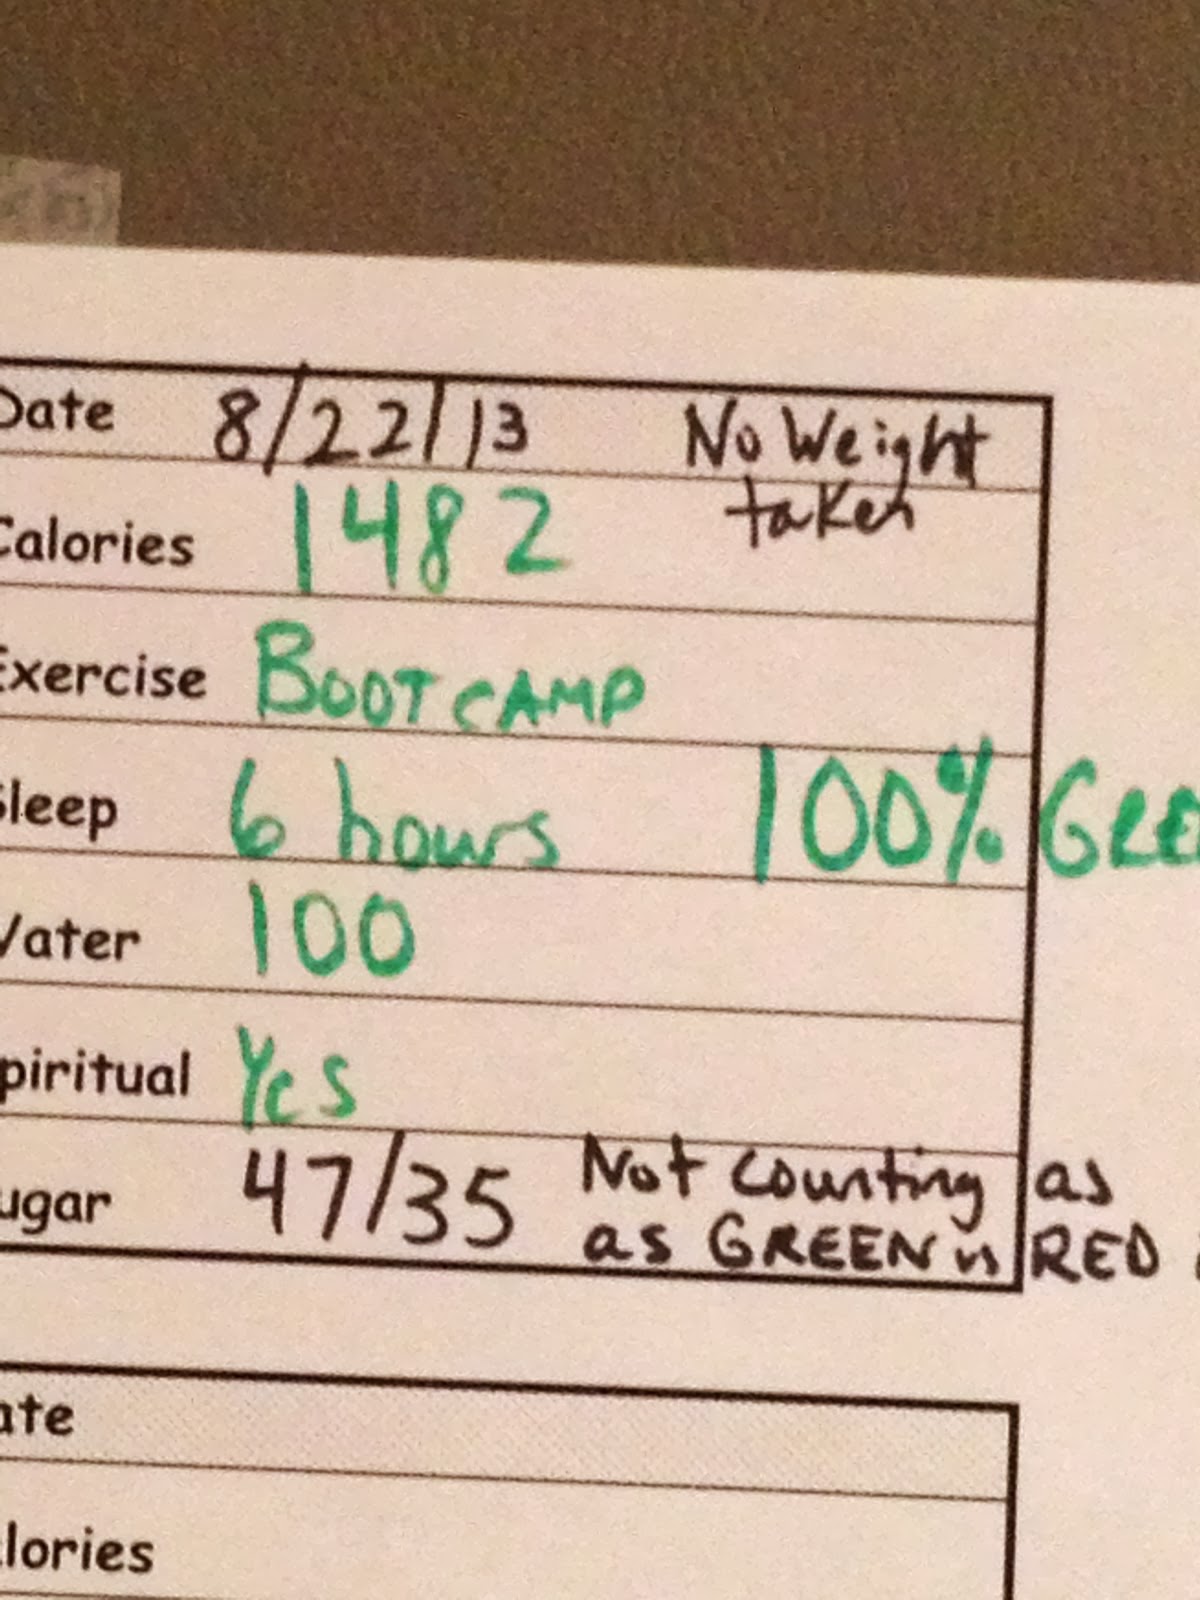 Date 8/22/13 No Weight
taken
Calories 1482
Exercise BOOTCAMP
Sleep 6 hours 100% GREE
Water 100
Spiritual Yes
Sugar 47/35 Not counting as
as GREEN RED
ate
lories